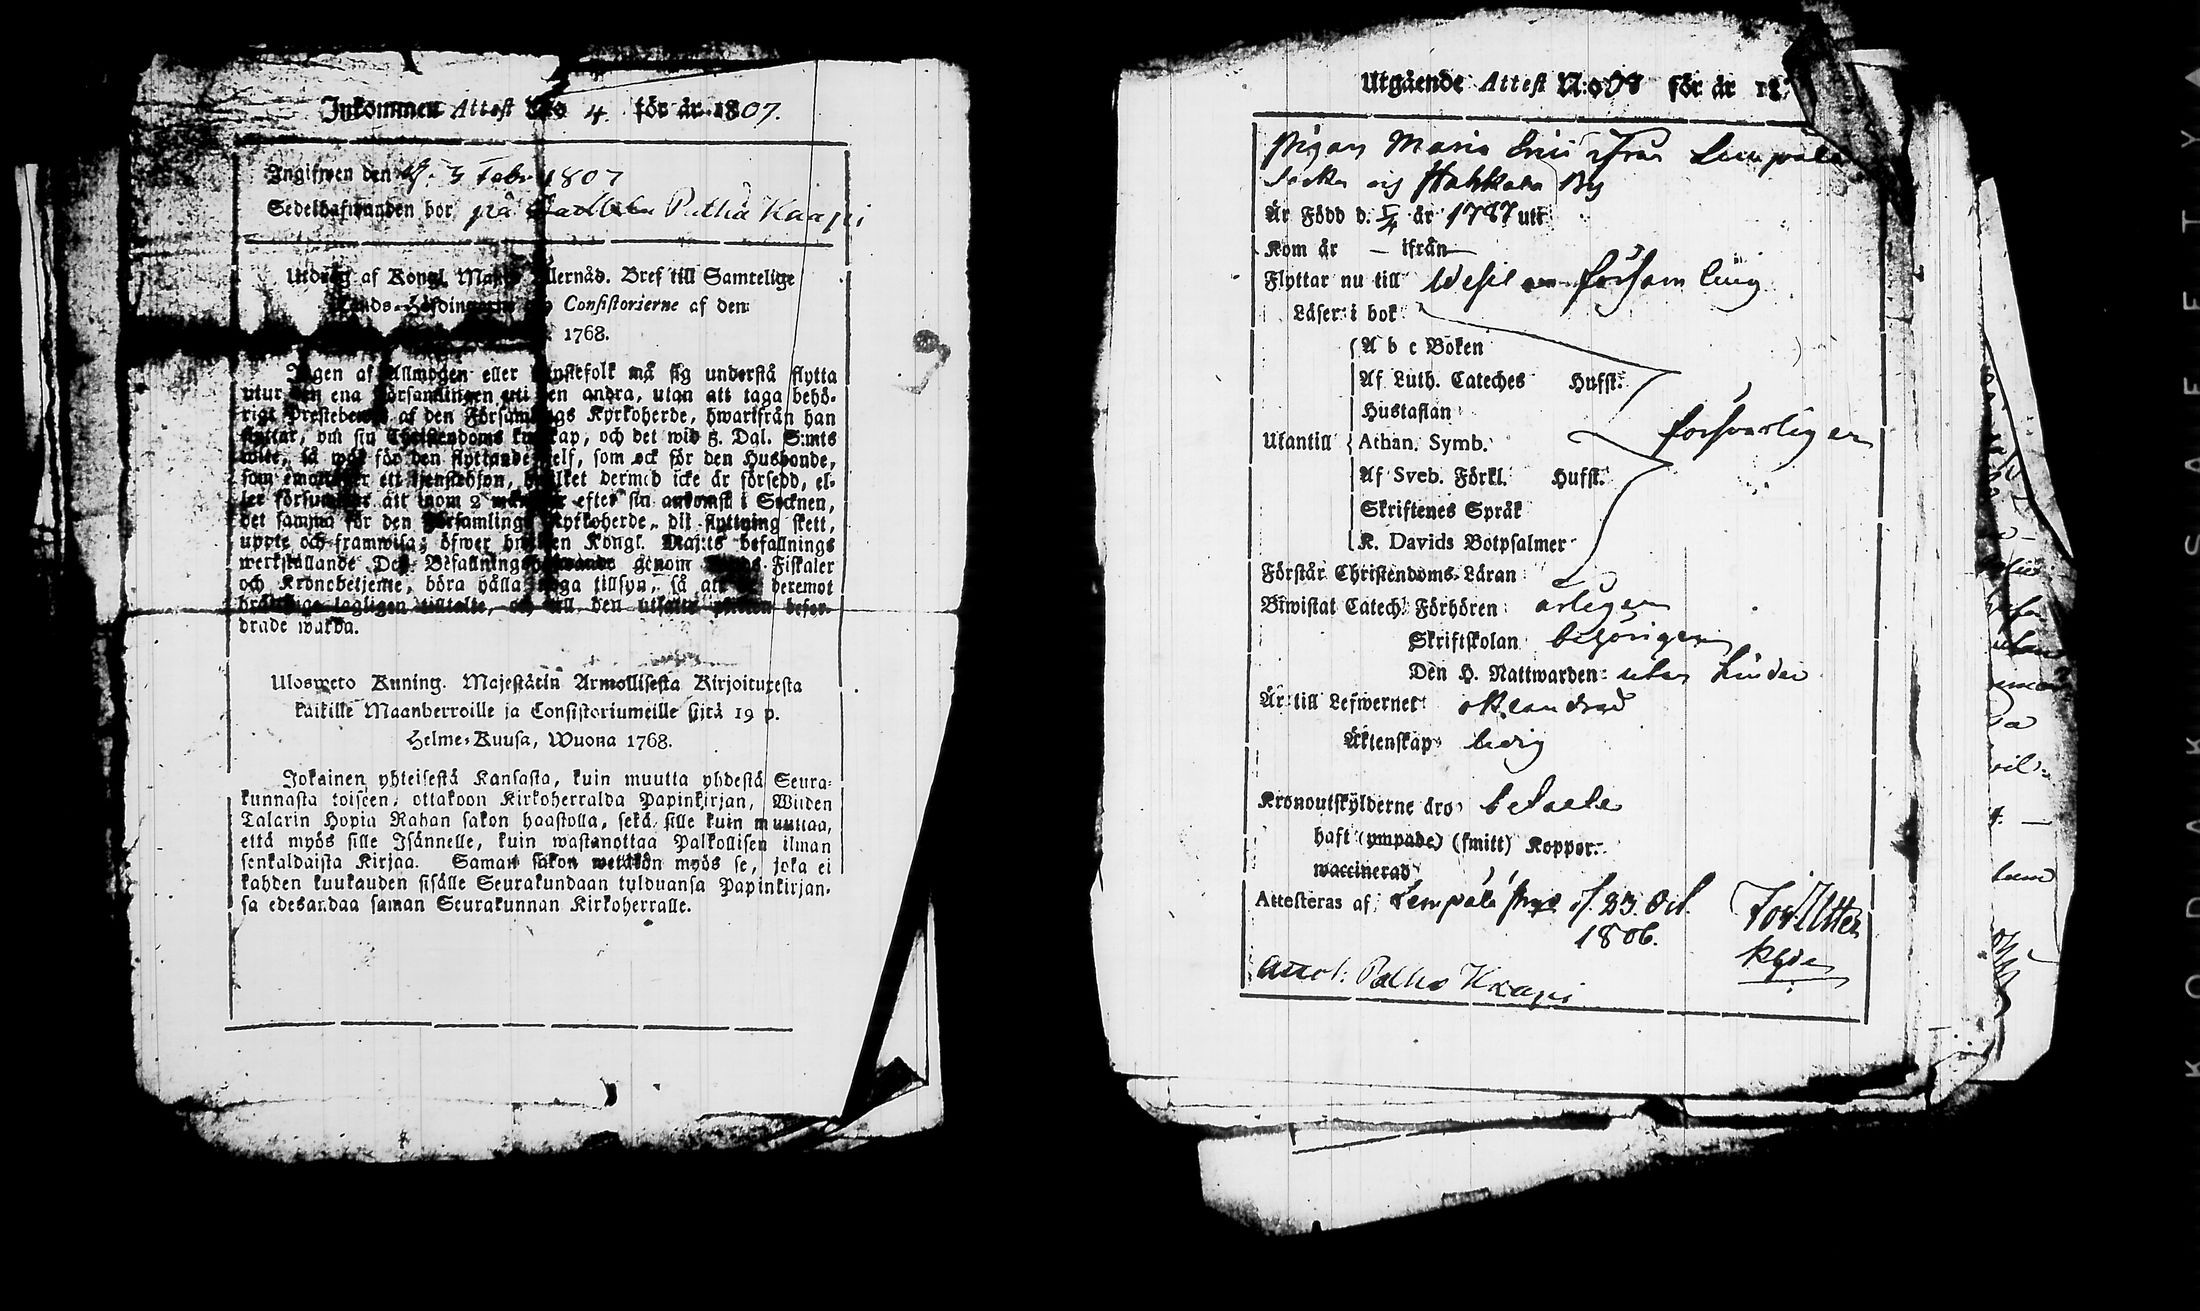 Inkommen Attest No 4. för år 1807.
Ingifwen den 3 Febr 1807
Sedelhafwanden bor på Patha Kaapi
Utdrag af Kongl. Maj:ts Allernåd. Bref till Samtelige
Lands-Höfdingarne Consistorierne af den
1768.
Ingen af Allmogen eller tjenstefolk må sig understå flytta
utur den ena Församlingen uti den andra, utan att taga behö-
rigt Prestebewis af den Församlings Kyrkoherde, hwarifrån han
flyttar, om sin Christendoms kunskap, och det wid 5. Dal. S:mts
wite, så wäl för den flyttande sjelf, som ock för den Husbonde,
som emottager ett tjenstehjon, hwilket dermed icke är försedd, el-
ler försummar att inom 2 månader efter sin ankomst i Socknen,
det samma för den Församlings Kyrkoherde, dit flyttning skett,
uppte och framwisa; öfwer hwilken Kongl. Maj:ts befallnings
werkställande Des Befallningshafwande genom Fiskaler
och Kronobetjente, böra hålla noga tillsyn, så att deremot
brättslige lagligen tilltalte, och till den utsatte plikten befor-
drade warda.
Ulosweto Kuning. Majestätin Armollisesta Kirjoituresta
kaikille Maanherroille ja Consistoriumeille siitä 19 p.
Helme-Kuusa, Wuona 1768.
Jokainen yhteisestä Kansasta, kuin muutta yhdestä Seura-
kunnasta toiseen, ottakoon Kirkoherralda Papinkirjan, Wiiden
Talarin Hopia Rahan sakon haastolla, sekä sille kuin muuttaa,
että myös sille Isännelle, kuin wastanottaa Palkollisen ilman
senkaldaista Kirjaa. Saman sakon wetäkön myös se, joka ei
kahden kuukauden sisälle Seurakundaan tulduansa Papinkirjan-
sa edesandaa saman Seurakunnan Kirkoherralle.
Utgående Attest N:o för år 18
Pigan Maria ifrån Lempälä
Sockn och Hahkala By
Är Född d. 5/4 år 1787 uti
Kom år — ifrån —
Flyttar nu till församling
Läser i bok
A b c Boken
Af Luth. Cateches Hufst.
Hustaflan
Utantill Athan. Symb. försvarligen
Af Sveb. Förkl. Hufst.
Skriftenes Språk
K. Davids Botpsalmer
Förstår Christendoms-Läran
Biwistat Catech. Förhören årligen
Skriftskolan behörigen
Den H. Nattwarden utan hinder
Är till Lefwernet oklandrad
Äktenskap ledig
Kronoutskylderne äro betalte
haft (ympade) (smitt) Koppor.
waccinerad
Attesteras af Lempälä d. 23. Oct.
1806.
Patho Kaapi